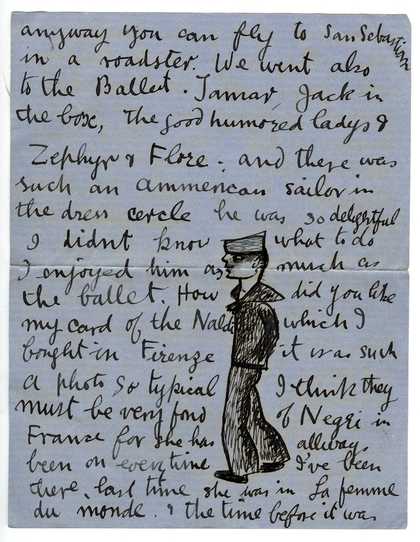 anyway you can fly to San Sebastian
in a roadster. We went also
to the Ballet. Tamar, Jack in
the box, The good humored ladys &
Zephyr & Flore. and there was
such an ammerican sailor in
the dress cercle he was so delightful
I didnt know what to do
I enjoyed him as much as
the ballet. How did you like
my card of the Naldi which I
bought in Firenze it was such
a photo so typical I think they
must be very fond of Negri in
France for she has allways
been on everytime I've been
there, last time she was in La femme
du monde. & the time before it was